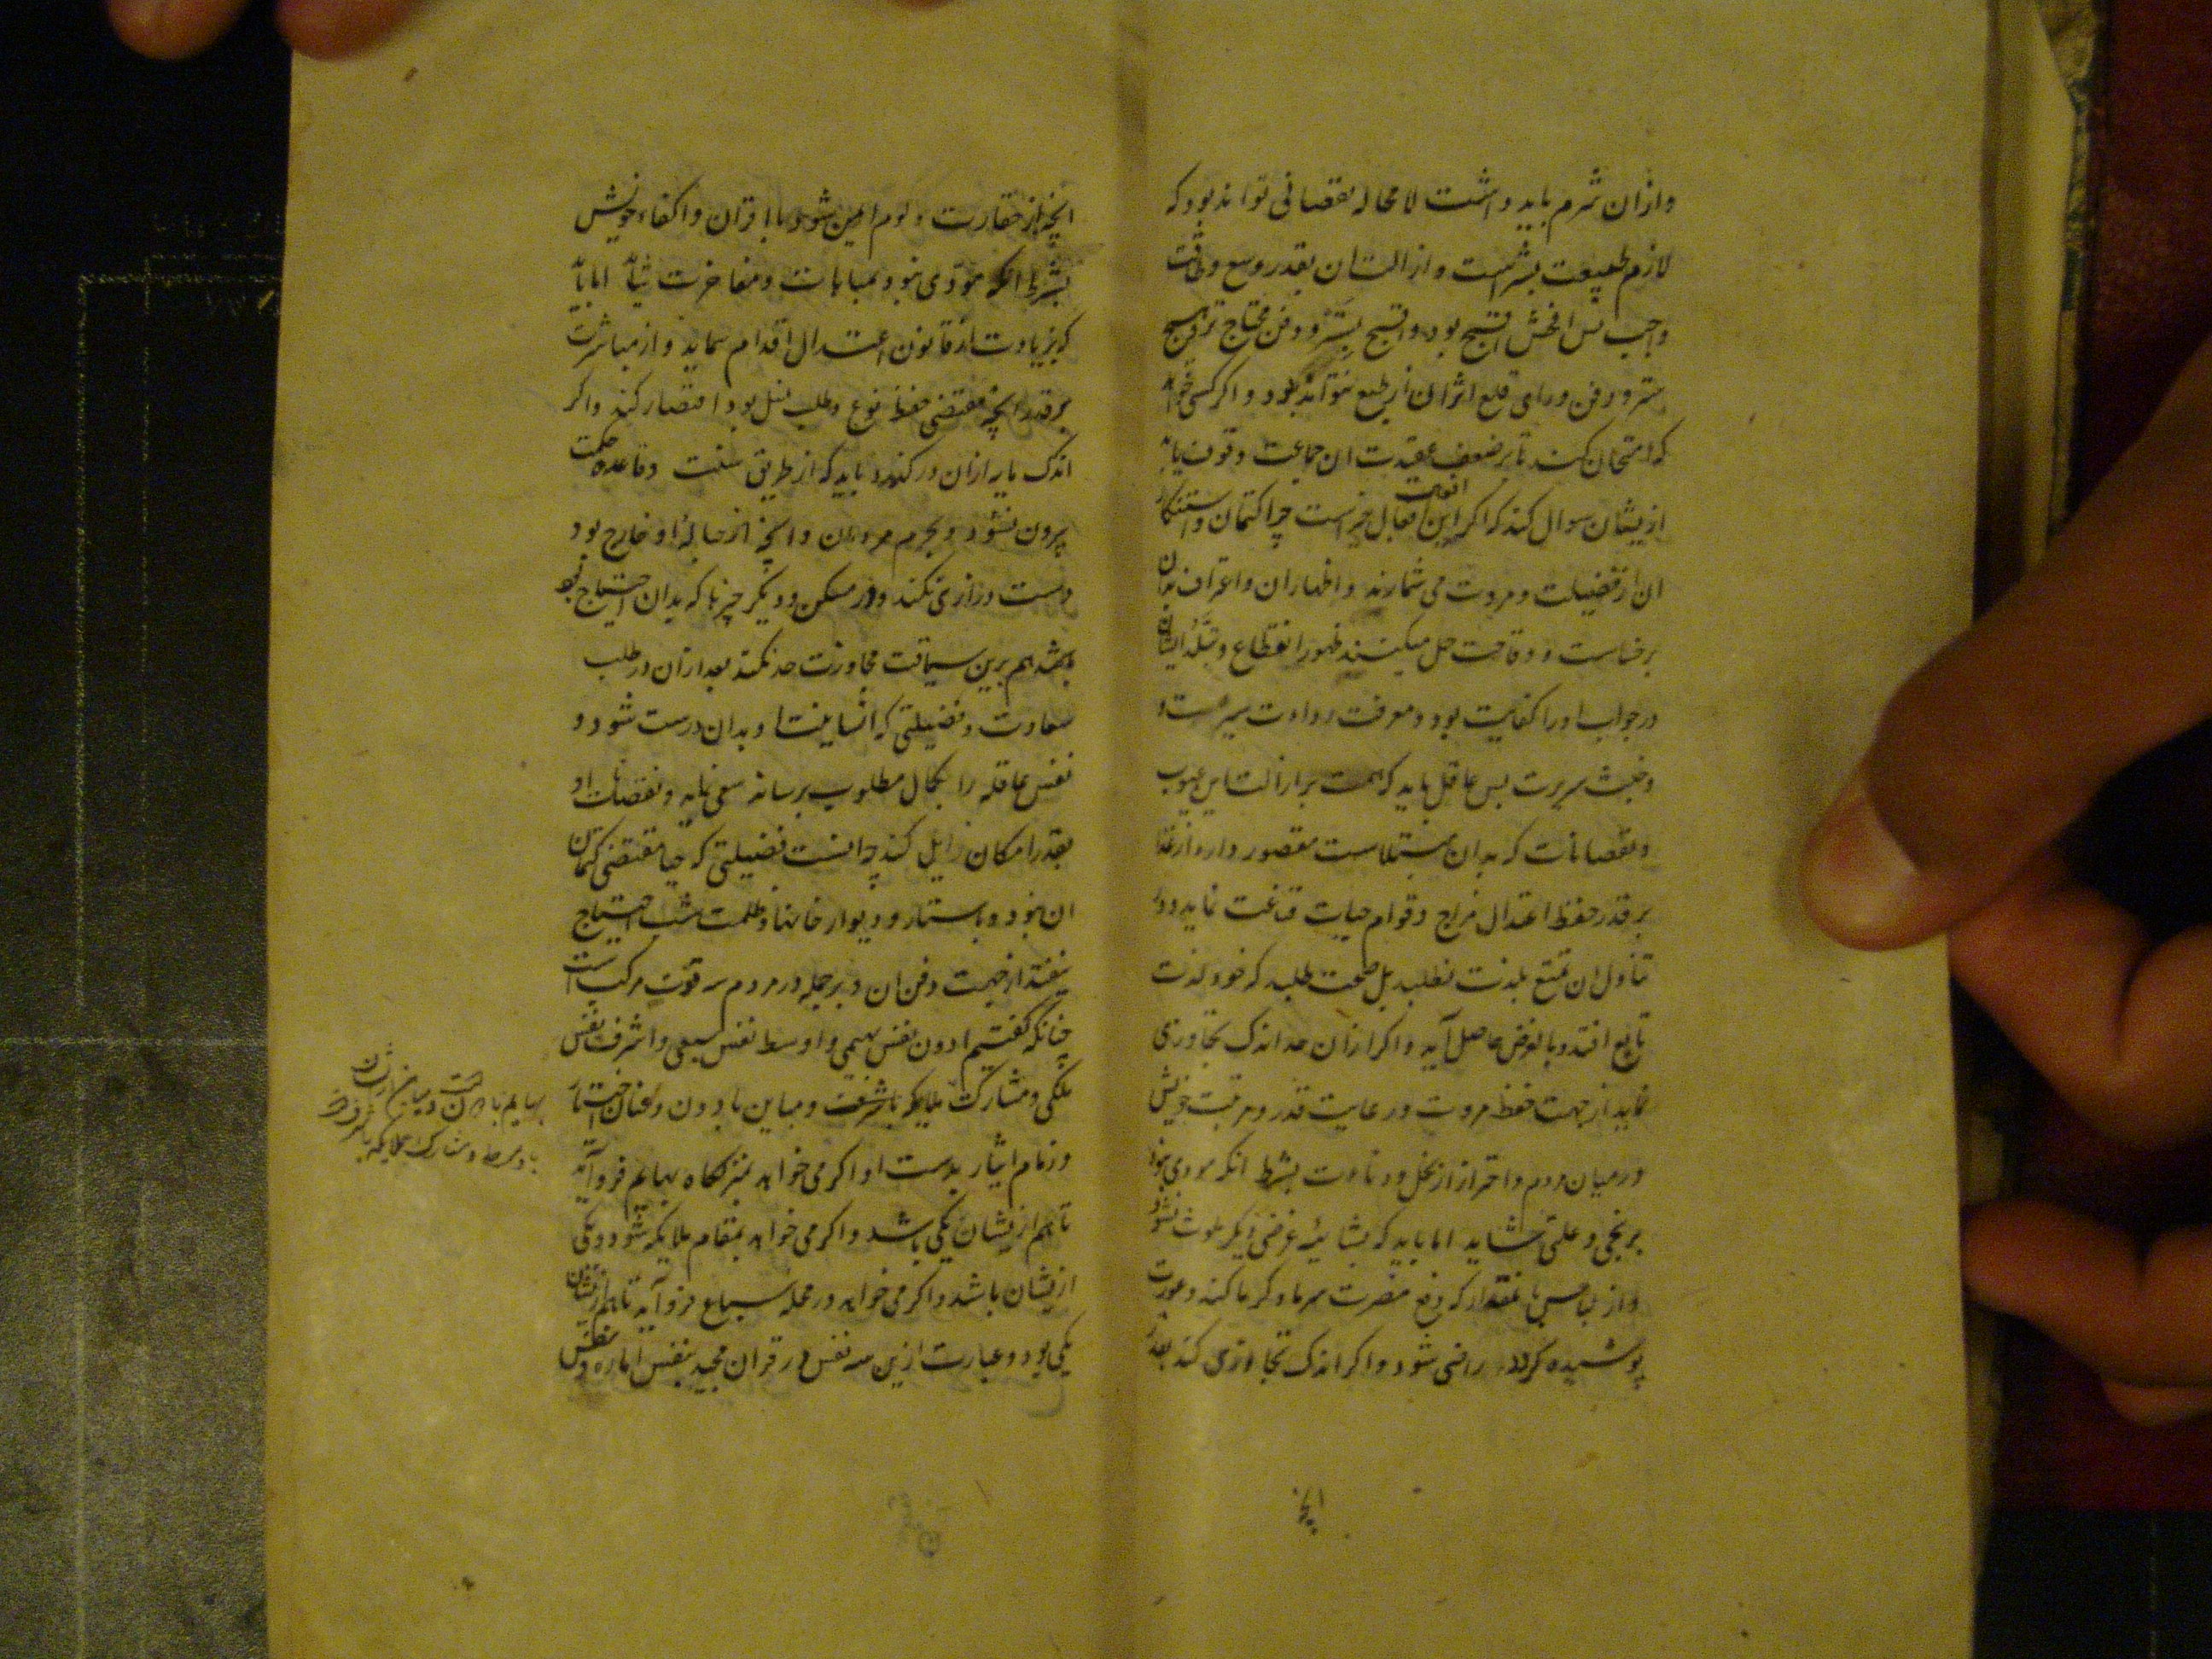 وازان شرم باید داشت لا محاله نقصانی تواند بود که
لازم طبیعت بشر است و ازالت ان بقدر وسع و طاقت
واجب پس افحش اقبح بود و اقبح بستر و دفن محتاج تر و هیچ
ستر و دفن ورای قلع اثر ان از طبع نتواند بود و اگر کسی خواهد
که امتحان کند تا بر ضعف عقیدت ان جماعت وقوف یابد
ازیشان سوال کند که اگر این افعال خیر است چرا کتمان و استنکار
ان از فضیلت و مروت می شمارند و اظهار ان و اعتراف بدان
بر خساست و وقاحت حمل میکنند ظهور انقطاع و تبلد ایشان
در جواب او را کفایت بود و معرفت رداءت سیرت و
و خبث سریرت پس عاقل باید که همت بر ازالت این عیوب
و نقصانات که بدان مبتلاست مقصور دارد از غذا
بر قدر حفظ اعتدال مزاج و قوام حیات قناعت نماید و در
تناول ان تمتع بلذت نطلبد بل صحت طلبد که خود لذت
تابع افتد و بالعرض حاصل آید و اگر ازان حد اندک تجاوزی
نماید از جهت حفظ مروت و رعایت قدر و مرتبت خویش
در میان مردم و احتراز از بخل و دناءت بشرط انکه مودی نبود
برنجی و علتی شاید اما باید که بشائبه غرضی دیگر ملوث نشود
و از لباس بانمقدار که دفع مضرت سرما و گرما کند و عورت
پوشیده گردد راضی شود و اگر اندک تجاوزی کند بقدر
انچه
انچه از حقارت و لوم ایمن شود با اقران و اکفاء خویش
بشرط انکه مودی نبود بمباهات و مفاخرت شاید اما باید
که بزیادت از قانون اعتدال اقدام ننماید و از مباشرت
بر قدر انچه مقتضی حفظ نوع و طلب نسل بود اقتصار کند و اگر
اندک مایه ازان درگذرد باید که از طریق سنت و قاعده حکمت
بیرون نشود و بحرم مردمان و انچه از حباله او خارج بود
دست درازی نکند و در مسکن و دیگر چیزها که بدان احتیاج بود
باشد هم برین سیاقت مجاوزت حد نکند بعد ازان در طلب
سعادت و فضیلتی که انسانیت او بدان درست شود و
نفس عاقله را بکمال مطلوب برساند سعی نماید و نقصانات او
بقدر امکان زایل کند چه انست فضیلتی که حیا مقتضی کتمان
ان نبود و باستار و دیوار خانها و ظلمت شب احتیاج
نیفتد از جهت دفن ان و بر جمله در مردم سه قوت مرکب است
چنانکه گفتیم ادون نفس بهیمی و اوسط نفس سبعی و اشرف نفس
ملکی و مشارکت ملایکه باشرفت و مباین بادون و عنان اختیار
و زمام ایثار بدست او اگر می خواهد بمنزلگاه بهایم فرو آید
تا هم ازیشان یکی باشد و اگر می خواهد بمقام ملایکه شود و یکی
ازیشان باشد و اگر می خواهد در محله سباع فرو آید تا هم ازیشان
یکی بود و عبارت ازین سه نفس در قران مجید بنفس اماره و نفس